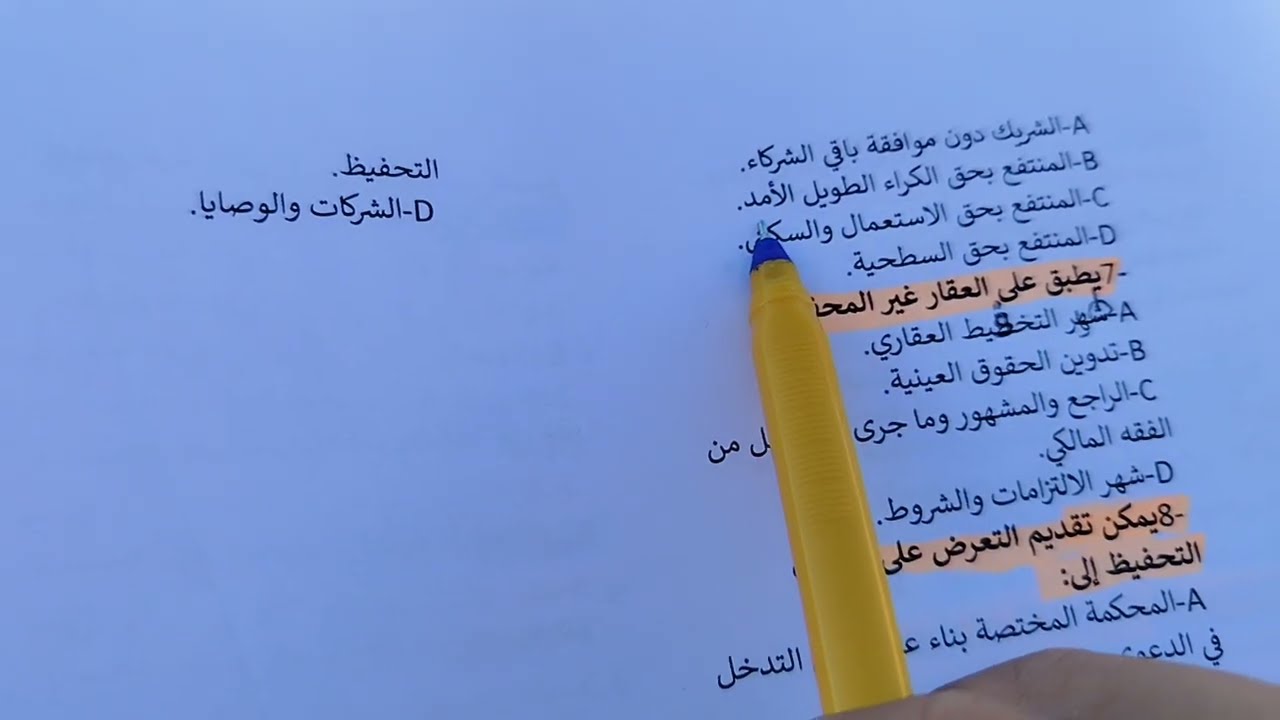 A-الشريك دون موافقة باقي الشركاء.
B-المنتفع بحق الكراء الطويل الأمد.
C-المنتفع بحق الاستعمال والسكنى.
D-المنتفع بحق السطحية.
-7يطبق على العقار غير
A-شهر التخطيط العقاري.
B-تدوين الحقوق العينية.
C-الراجع والمشهور وما جرى من
الفقه المالكي.
D-شهر الالتزامات والشروط.
-8يمكن تقديم التعرض على
التحفيظ إلى:
A-المحكمة المختصة بناء التدخل
في
التحفيظ.
D-الشركات والوصايا.